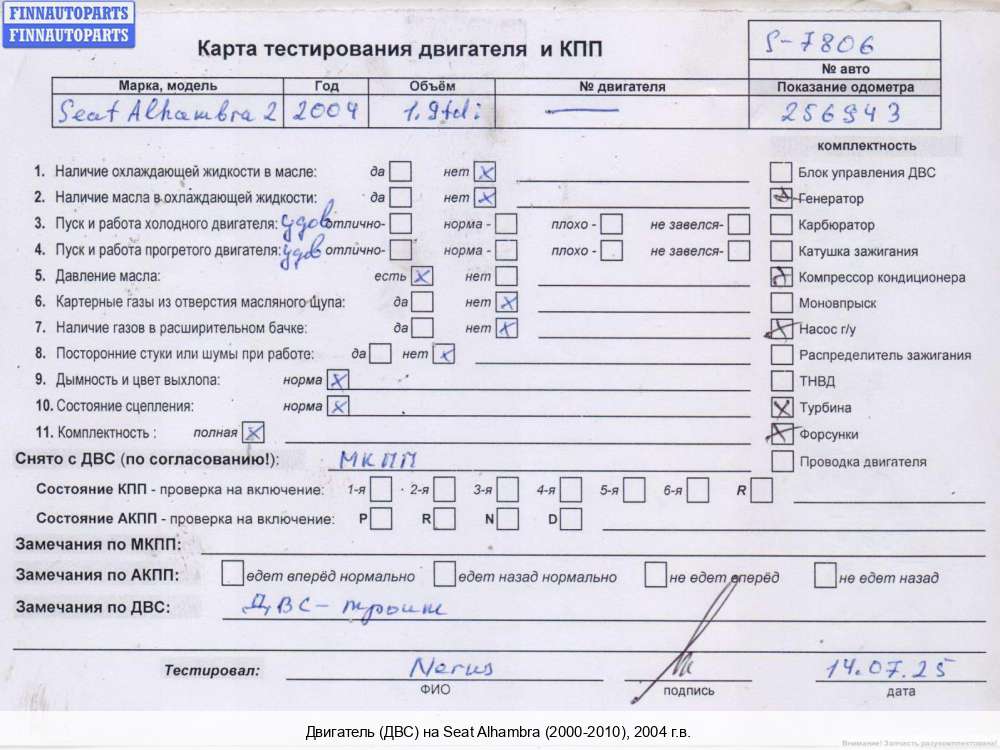 FINNAUTOPARTS
FINNAUTOPARTS
Карта тестирования двигателя и КПП
S-7806
№ авто
Марка, модель Год Объём № двигателя Показание одометра
Seat Alhambra 2 2004 1.9tdi — 256943
комплектность
1. Наличие охлаждающей жидкости в масле: да нет Блок управления ДВС
2. Наличие масла в охлаждающей жидкости: да нет Генератор
3. Пуск и работа холодного двигателя: удов отлично- норма - плохо - не завелся- Карбюратор
4. Пуск и работа прогретого двигателя: удов отлично- норма - плохо - не завелся- Катушка зажигания
5. Давление масла: есть нет Компрессор кондиционера
6. Картерные газы из отверстия масляного щупа: да нет Моновпрыск
7. Наличие газов в расширительном бачке: да нет Насос г/у
8. Посторонние стуки или шумы при работе: да нет Распределитель зажигания
9. Дымность и цвет выхлопа: норма ТНВД
10. Состояние сцепления: норма Турбина
11. Комплектность : полная Форсунки
Снято с ДВС (по согласованию!): МКПП Проводка двигателя
Состояние КПП - проверка на включение: 1-я 2-я 3-я 4-я 5-я 6-я R
Состояние АКПП - проверка на включение: P R N D
Замечания по МКПП:
Замечания по АКПП: едет вперёд нормально едет назад нормально не едет вперёд не едет назад
Замечания по ДВС: ДВС - троит
Тестировал: 14.07.25
ФИО подпись дата
Двигатель (ДВС) на Seat Alhambra (2000-2010), 2004 г.в.
Внимание! Запчасть разукомплектована!